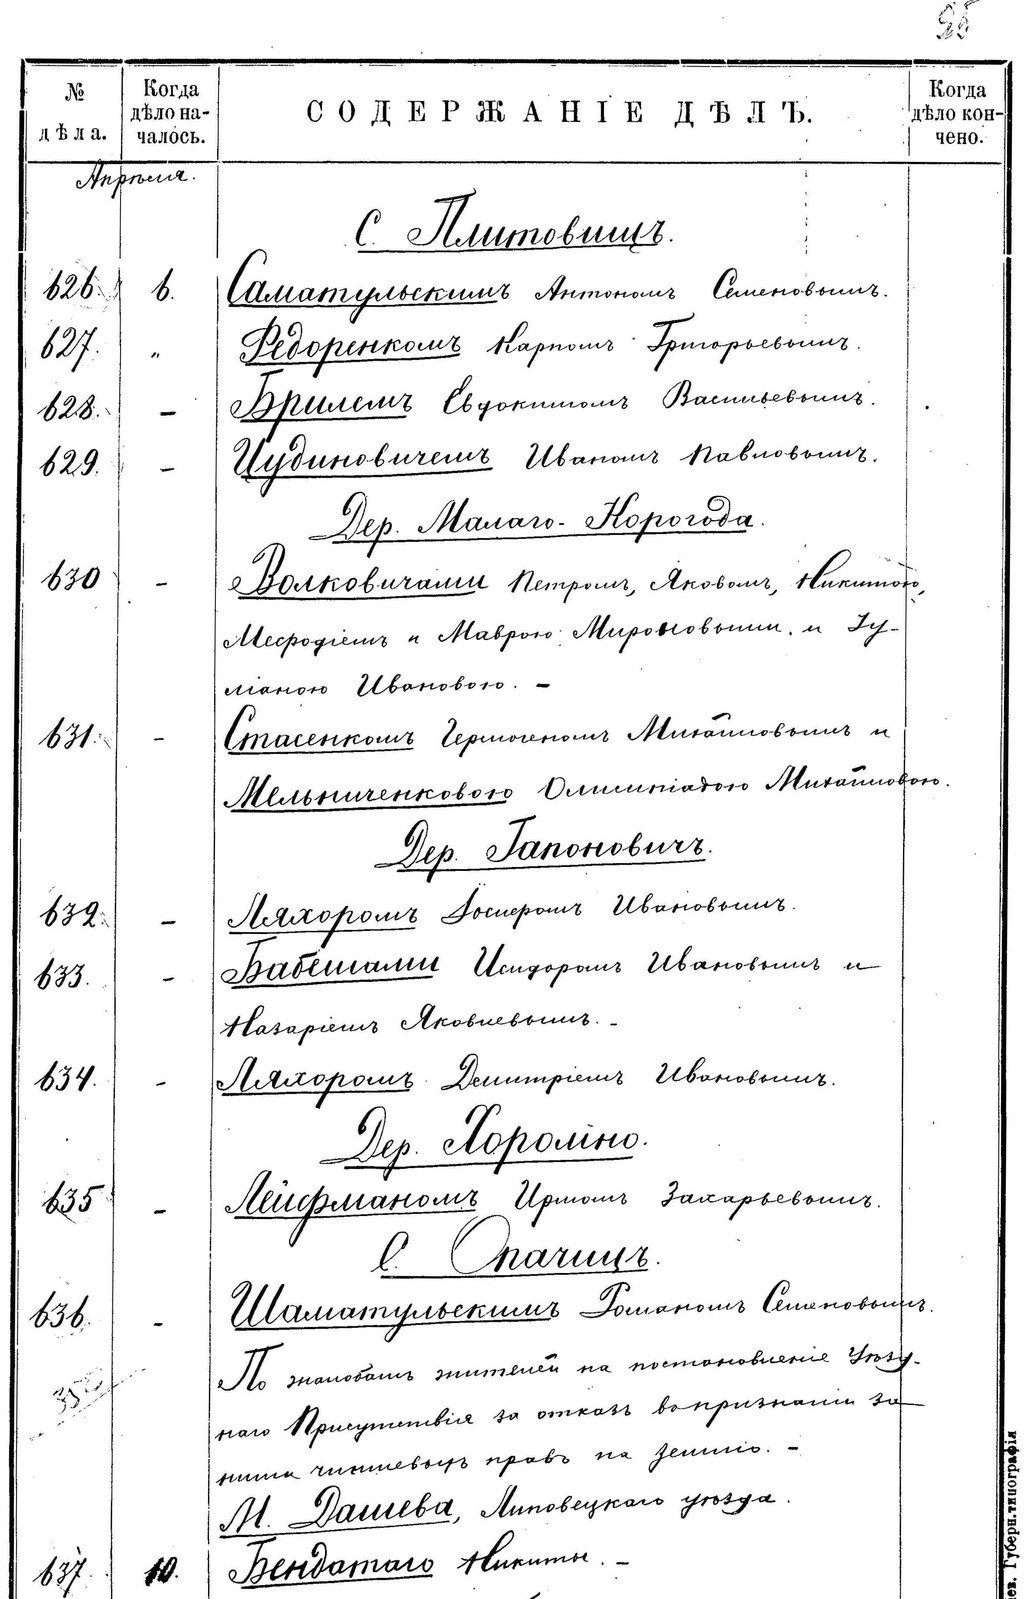 25
№ дѣла.
Когда дѣло началось.
СОДЕРЖАНІЕ ДѢЛЪ.
Когда дѣло кончено.
Апрѣля.
С. Плитовищъ.
626. 6. Саматульскимъ Антономъ Семеновымъ.
627. „ Федоренкомъ Карпомъ Григорьевымъ.
628. – Брилемъ Евдокимомъ Васильевымъ.
629. – Чудиновичемъ Иваномъ Павловымъ.
Дер. Малаго-Корогода.
630 – Волковичами Петромъ, Яковомъ, Никитою,
Мефодіемъ и Маврою Мироновыми. и Іу-
ліаною Ивановою. –
631. – Стасенкомъ Гермогеномъ Михайловымъ и
Мельниченковою Олимпіадою Михайловою.
Дер. Гапоновичъ.
632. – Ляхоромъ Іосифомъ Ивановымъ.
633. – Бабешами Исидоромъ Ивановымъ и
Назаріемъ Яковлевымъ. –
634. – Ляхоромъ Демитріемъ Ивановымъ.
Дер. Хороміно.
635 – Лейфманомъ Ирмомъ Захарьевымъ.
С. Опачицъ.
636. – Шаматульскимъ Романомъ Семеновымъ.
По жалобамъ жителей на постановленіе Уѣзд-
наго Присутствія за отказъ въ признаніи за
ними чиншевыхъ правъ на землю. –
М. Дашева, Липовецкаго уѣзда.
637. 10. Бендатаго Никиты. –
Губерн. типографія